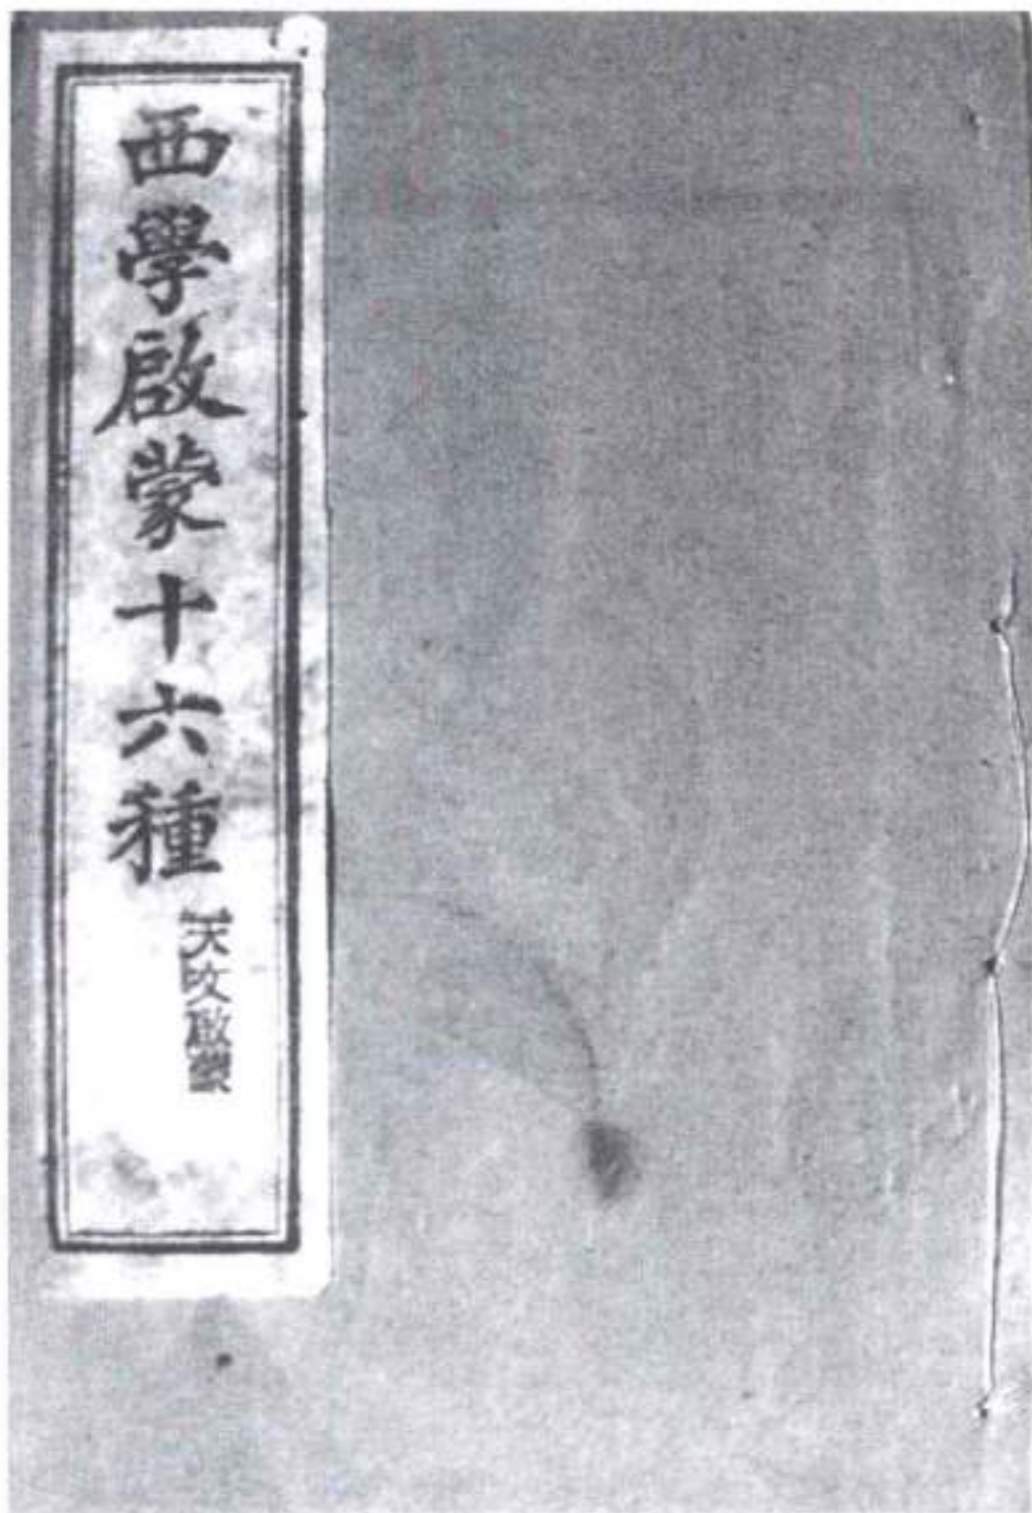 西學啟蒙十六種
天文啟蒙